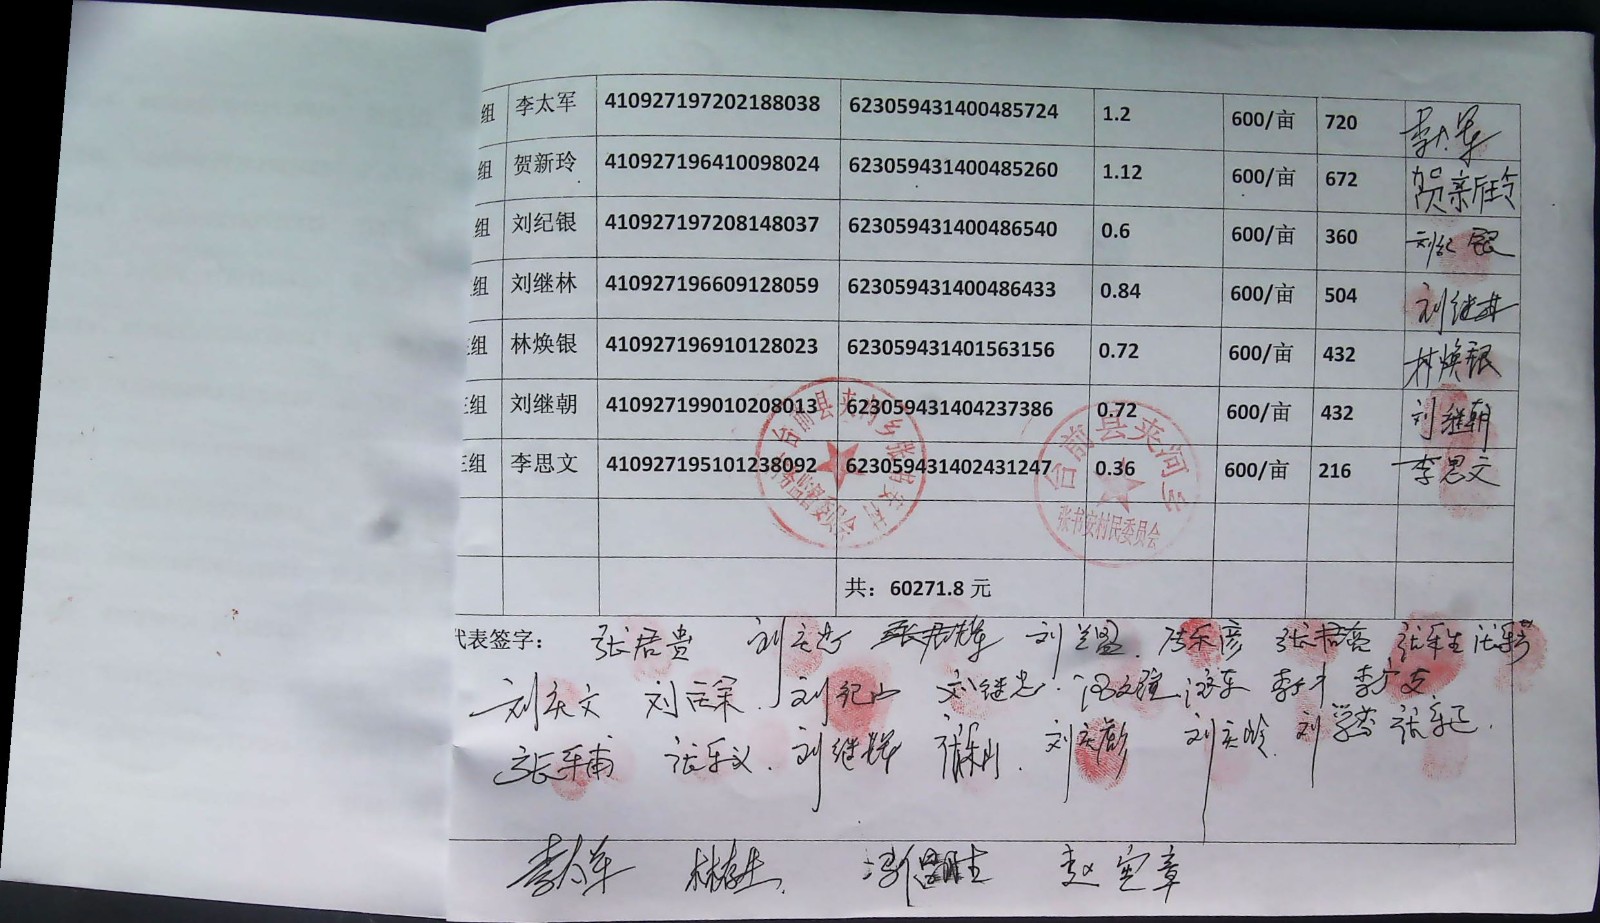 组 李太军 410927197202188038 623059431400485724 1.2 600/亩 720 李太军
组 贺新玲 410927196410098024 623059431400485260 1.12 600/亩 672 贺新玲
组 刘纪银 410927197208148037 623059431400486540 0.6 600/亩 360 刘纪银
组 刘继林 410927196609128059 623059431400486433 0.84 600/亩 504 刘继林
组 林焕银 410927196910128023 623059431401563156 0.72 600/亩 432 林焕银
三组 刘继朝 410927199010208013 623059431404237386 0.72 600/亩 432 刘继朝
三组 李思文 410927195101238092 623059431402431247 0.36 600/亩 216 李思文
台前县夹河乡张书安村务监督委员会
台前县夹河乡
张书安村民委员会
共：60271.8 元
代表签字： 张君贵 刘庆忠 刘兰盈 张书亮
刘庆文 刘纪山 刘继忠
张乐甫 张乐义 刘继辉 刘庆岭 刘
李太军 林存生 赵宪章